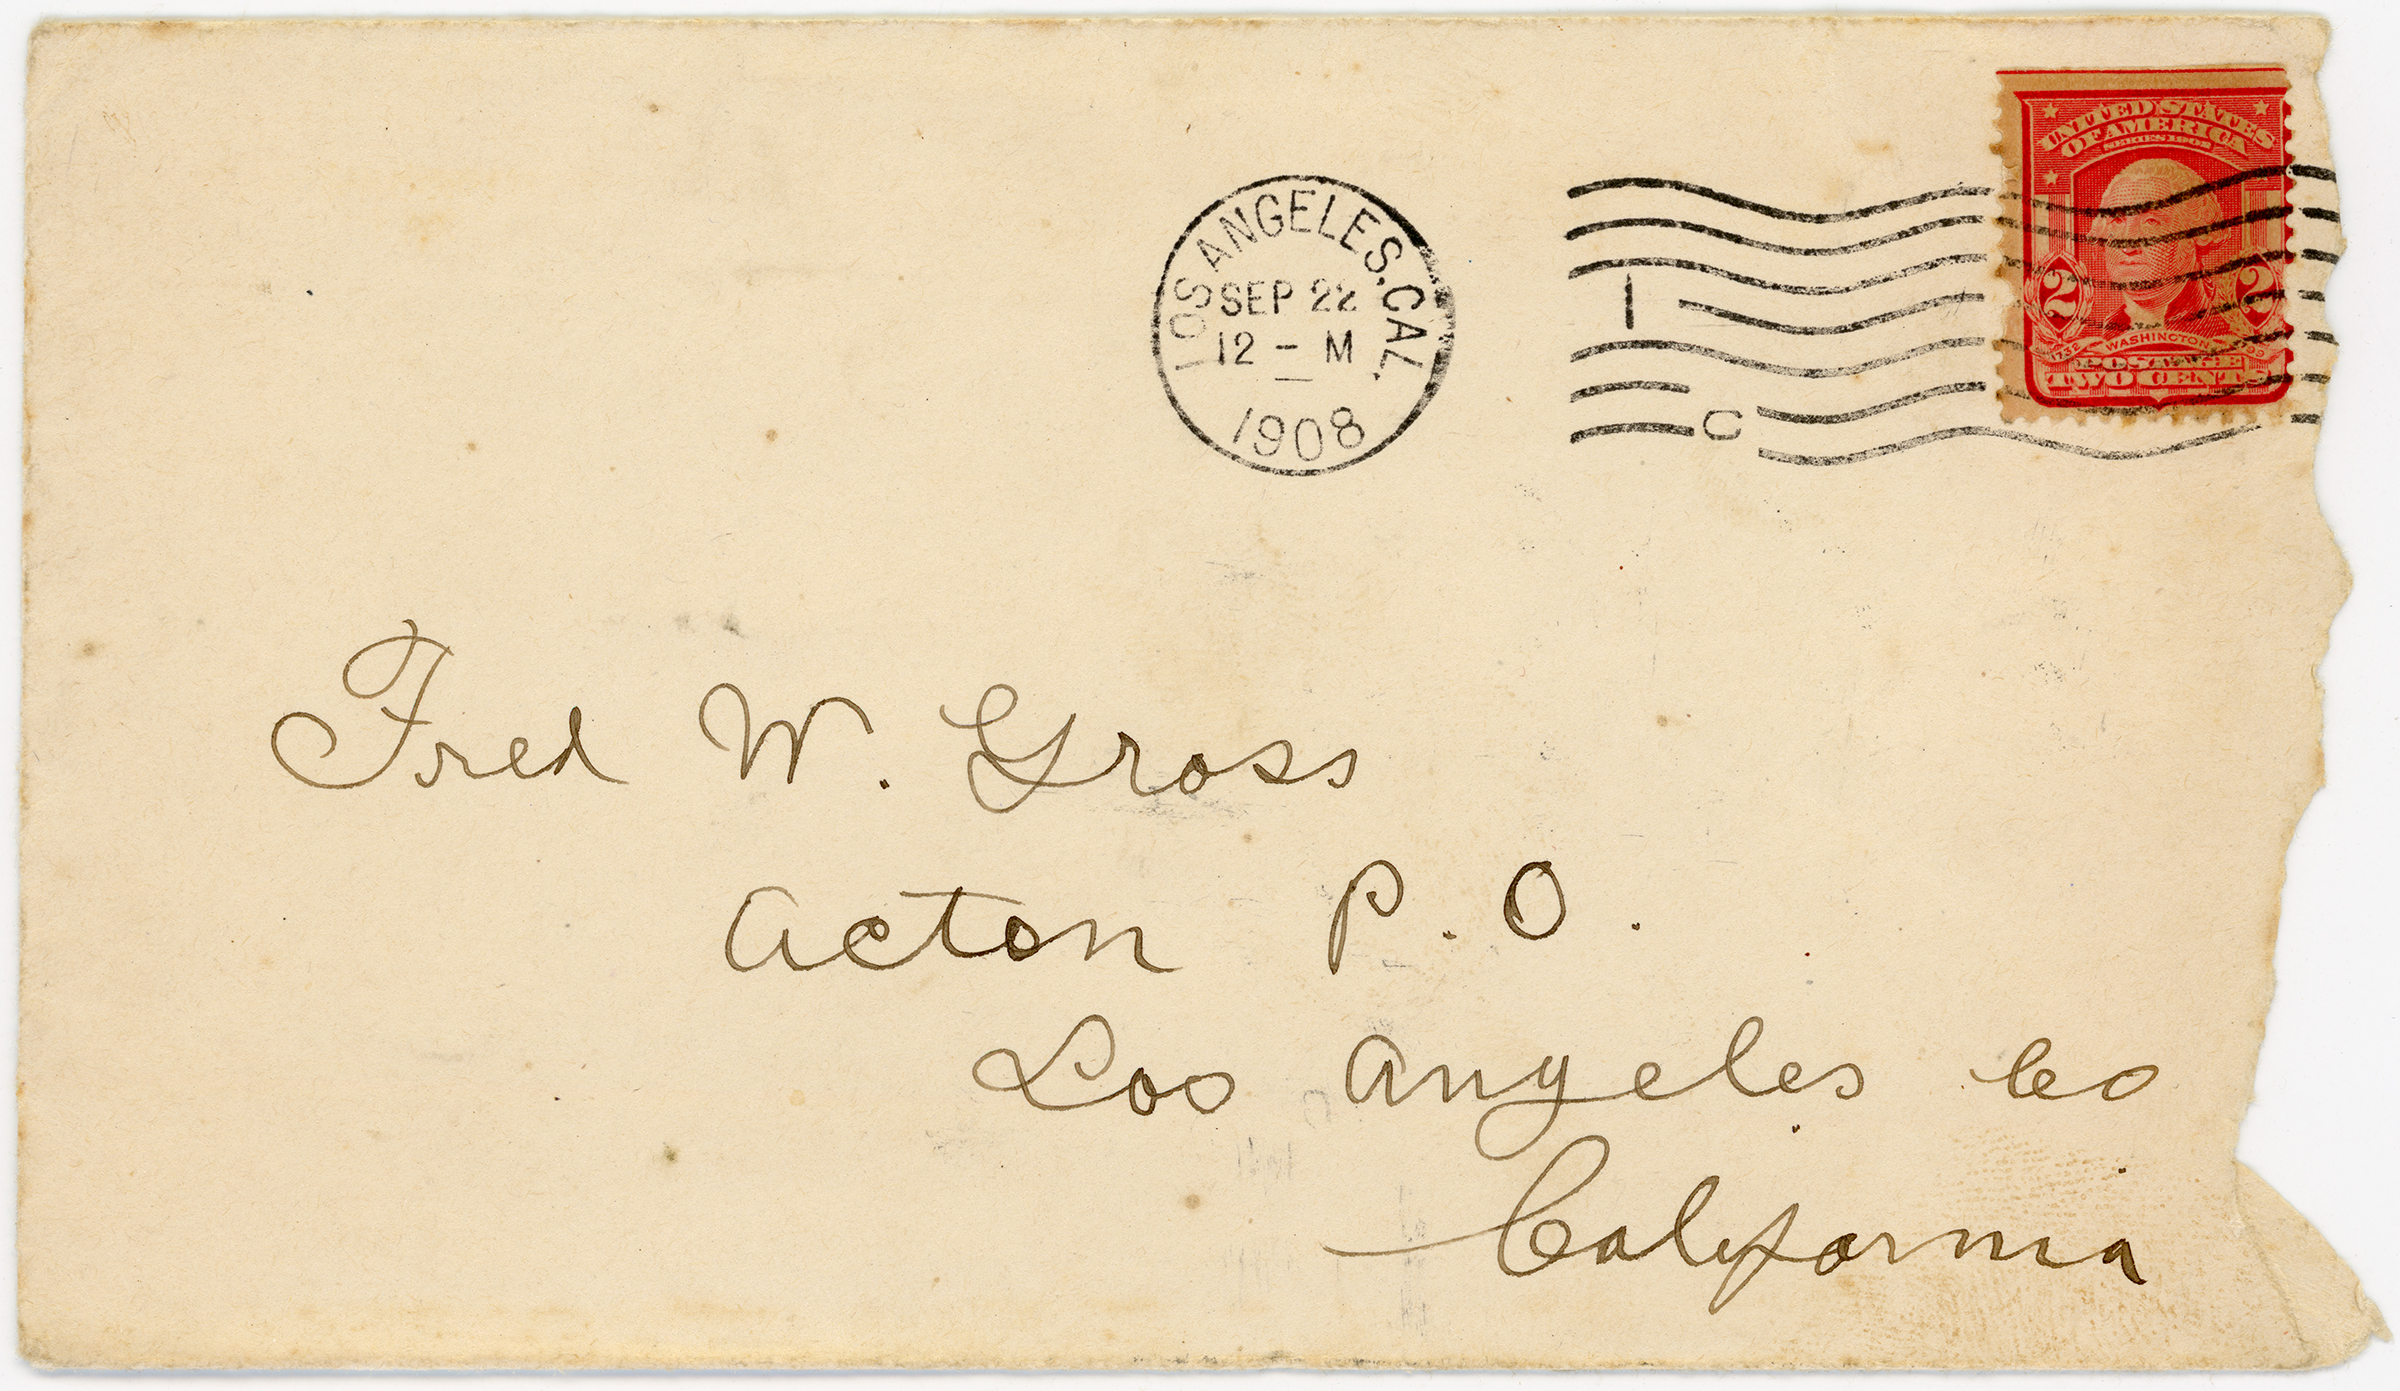 UNITED STATES
OF AMERICA
SERIES 1902
2 2
1732 WASHINGTON 1799
POSTAGE
TWO CENTS
LOS ANGELES, CAL.
SEP 22
12 - M
1908
1
C
Fred W. Gross
Acton P. O.
Los Angeles Co
California